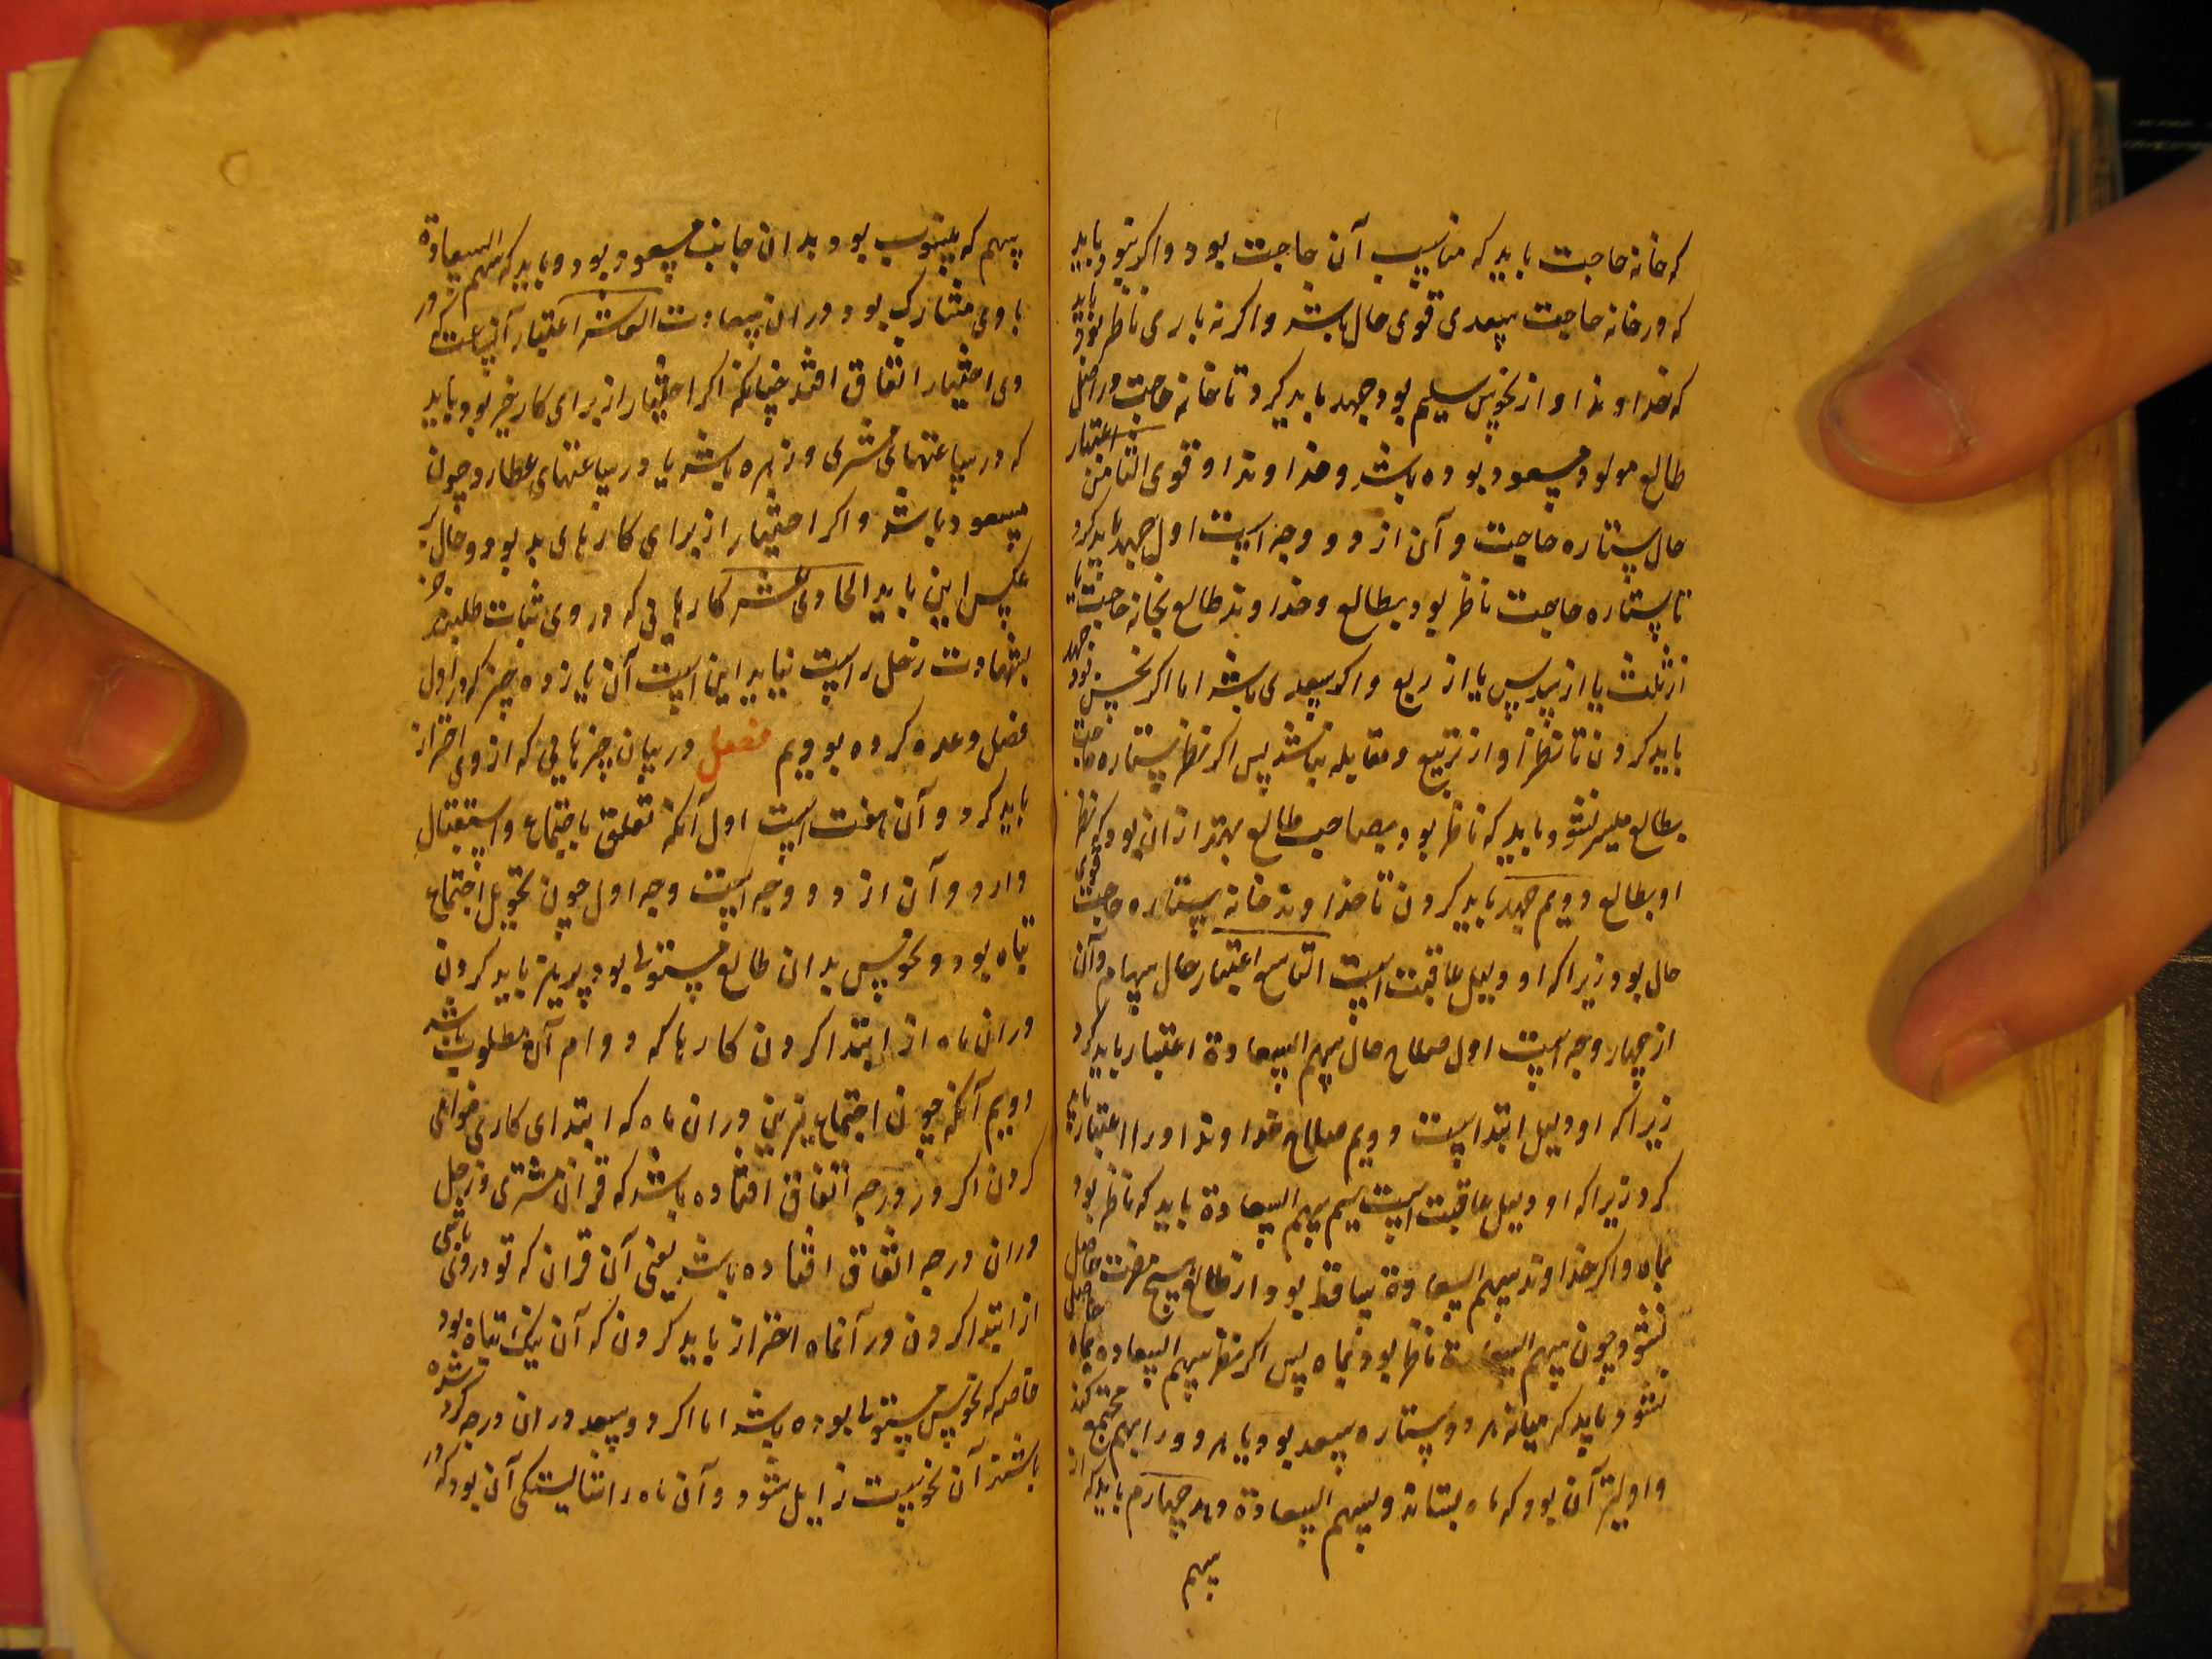 که خانه حاجت باید که مناسب آن حاجت بود واکر نبود باید
که در خانه حاجت سعدی قوی حال باشد واکر نه باری ناظر بود باید
که خداوند او از نحوس سلیم بود جهد باید کرد تا خانه حاجت در اصل
طالع مولود مسعود بوده باشد و خداوند او قوی الثامن اعتبار
حال ستاره حاجت و آن از دو وجه است اول جهد باید کرد
تا ستاره حاجت ناظر بود بطالع و خداوند طالع بخانه حاجت
از تثلیث یا از تسدیس یا از تربیع واکر سعدی باشد اما اکر نحس بود جهد
باید کردن تا نظر او از تربیع و مقابله نباشد پس اکر نظر ستاره حاجت
بطالع میسر نشود باید که ناظر بود بصاحب طالع بهتر از ان بود که نظر
او بطالع دویم جهد باید کردن تا خداوند خانه ستاره حاجت قوی
حال بود زیرا که او دلیل عاقبت است التاسع اعتبار حال سهام و آن
از چهار وجه است اول صلاح حال سهم السعادة اعتبار باید کرد
زیرا که او دلیل ابتداست دویم صلاح خداوند او را اعتبار باید
کرد زیرا که او دلیل عاقبت است سیم سهم السعادة باید که ناظر بود
بماه واکر خداوند سهم السعادة ساقط بود از طالع هیچ مضرت حاصل
نشود چون سهم السعادة ناظر بود بماه پس اکر نظر سهم السعاده بماه حاصل
نشود باید که میانه هر دو ستاره سعد بود یا هر دو را بهم مجتمع کند
و اولیتر آن بود که ماه بستاند و بسهم السعادة دهد چهارم باید که از
سهم
سهم که منسوب بود بدان جانب مسعود بود و باید که سهم السعادة
با وی مشارک بود در ان سهادت العاشر اعتبار آن ساعت که در
وی اختیار اتفاق افتد چنانکه اکر اختیار از برای کار خیر بود باید
که در ساعتهای مشتری و زهره باشد یا در ساعتهای عطارد چون
مسعود باشد واکر اختیار از برای کارهای بد بود و حال بر
عکس این باید الحادی عشر کارهایی که در وی ثبات طلبند جز
بشهادت زحل راست نیاید این است آن یازده چیز که در اول
فصل وعده کرده بودیم فصل در بیان چیزهایی که از وی احتراز
باید کرد و آن هفت است اول آنکه تعلق باجتماع و استقبال
دارد و آن از دو وجه است وجه اول چون تحویل اجتماع
تباه بود و نحوس بدان طالع مستولی بود پرهیز باید کردن
در ان ماه از ابتدا کردن کارها که دوام آن مطلوب باشد
دویم آنکه چون اجتماع نیرین در ان ماه که ابتدای کاری خواهی
کردن اکر در درجه اتفاق افتاده باشد که قران مشتری و زحل
در ان درجه اتفاق افتاده باشد یعنی آن قران که تو در وی باشی
از ابتدا کردن در آنماه احتراز باید کردن که آن نیک تباه بود
خاصه که نحوس مستولی بوده باشد اما اکر دو سعد در ان درجه کرد شده
باشند آن نحوست زایل شود و آن ماه را شایستکی آن بود که در